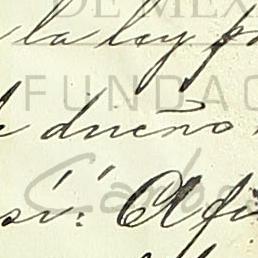 DE MÉX
la ley p
FUNDAC
dueño
Carlos
sí: Afi